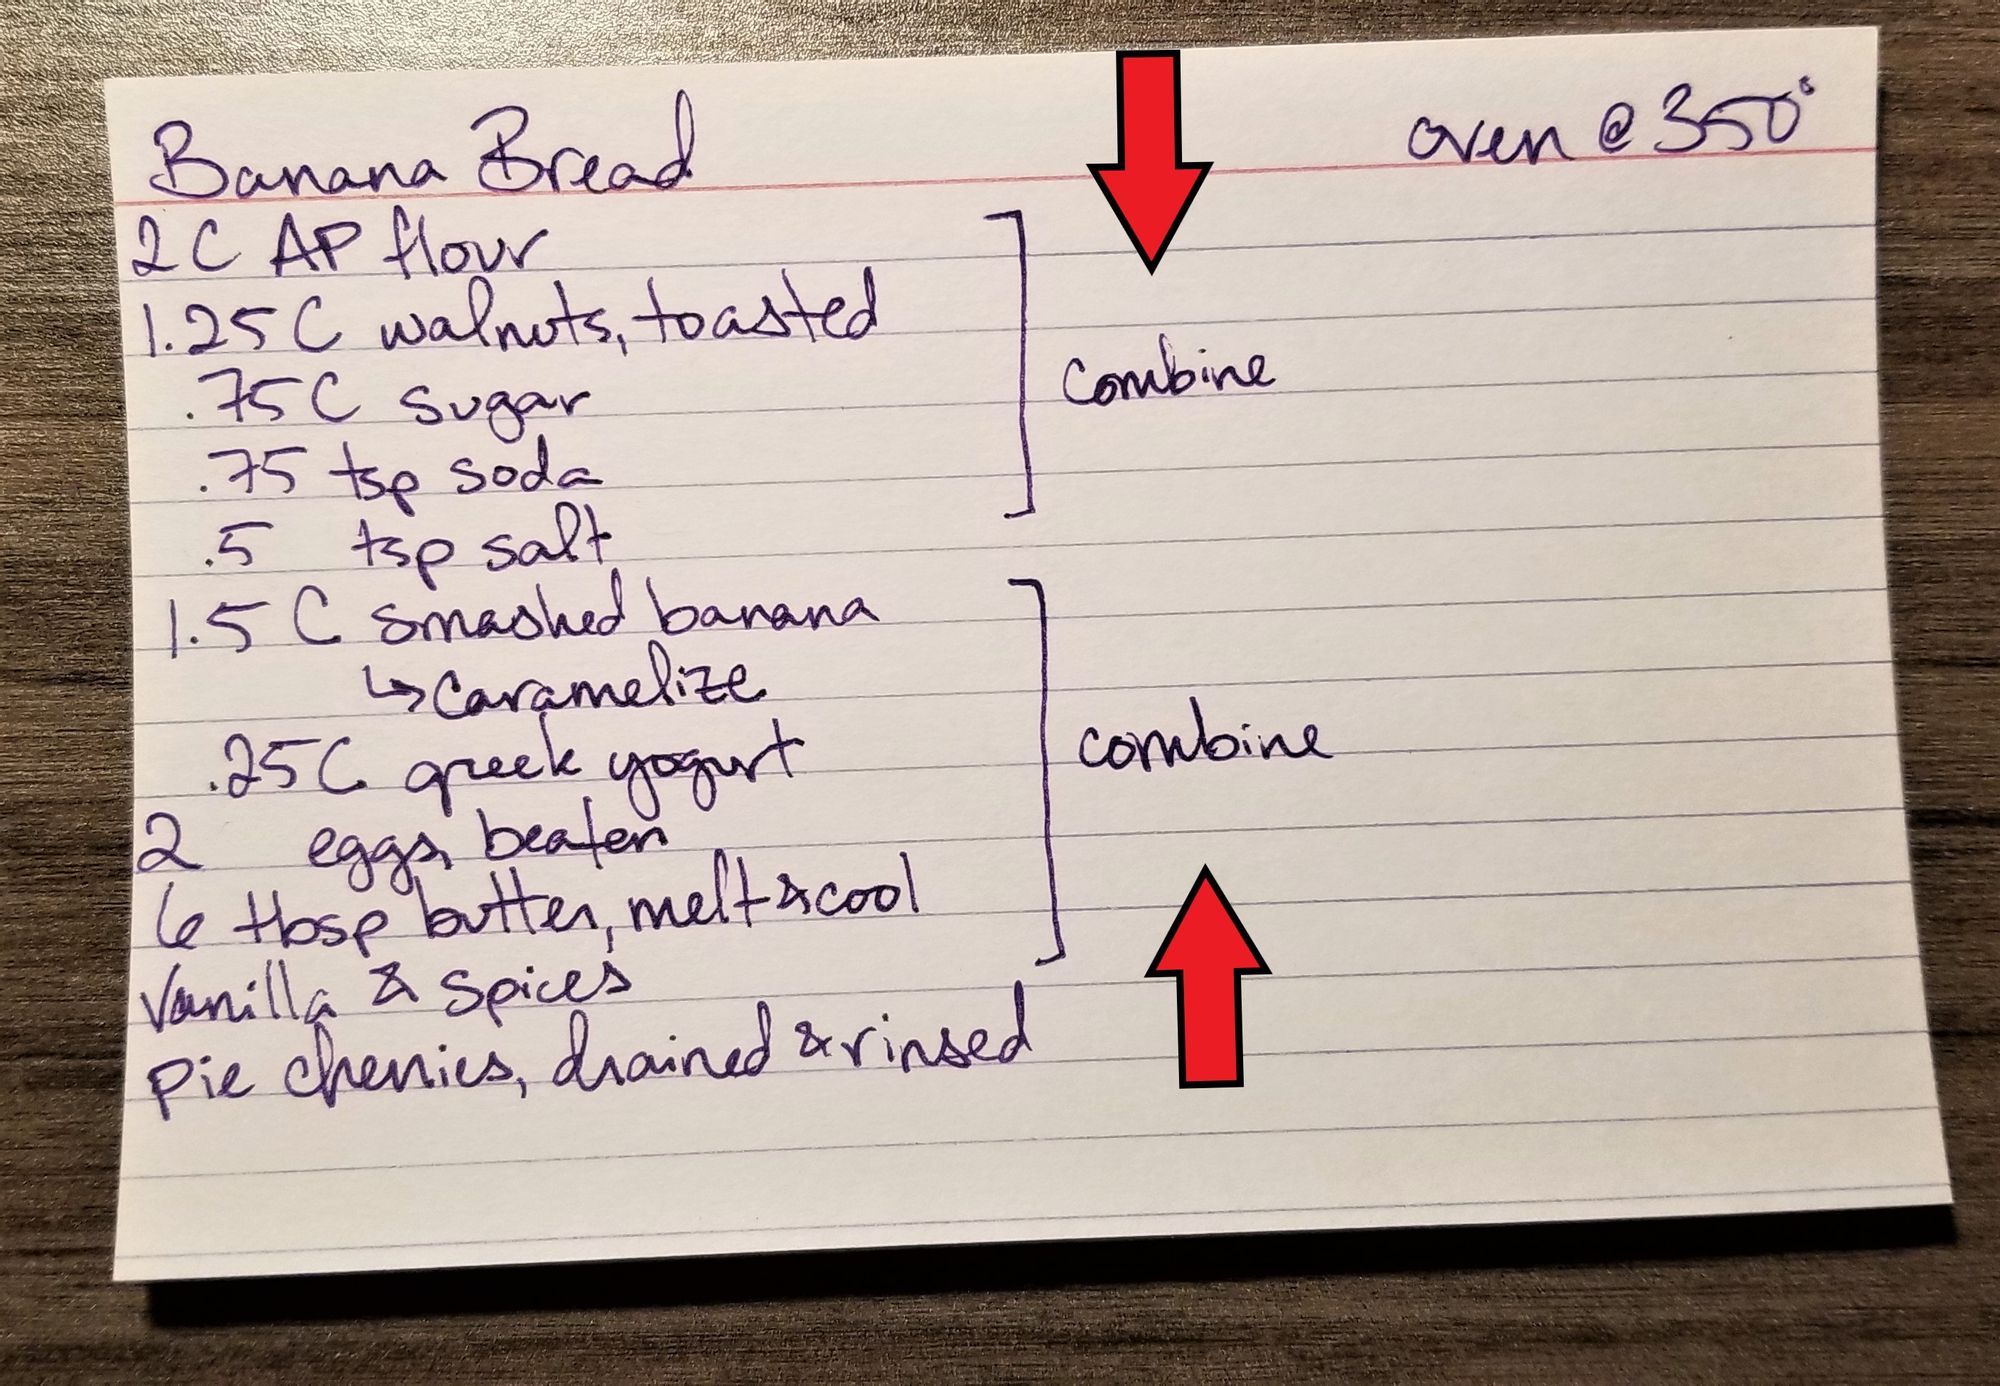 Banana Bread oven @ 350°
2 C AP flour
1.25 C walnuts, toasted
.75 C sugar
combine
.75 tsp soda
.5 tsp salt
1.5 C smashed banana
↳ caramelize
.25 C greek yogurt
combine
2 eggs, beaten
6 tbsp butter, melt & cool
Vanilla & spices
pie cherries, drained & rinsed